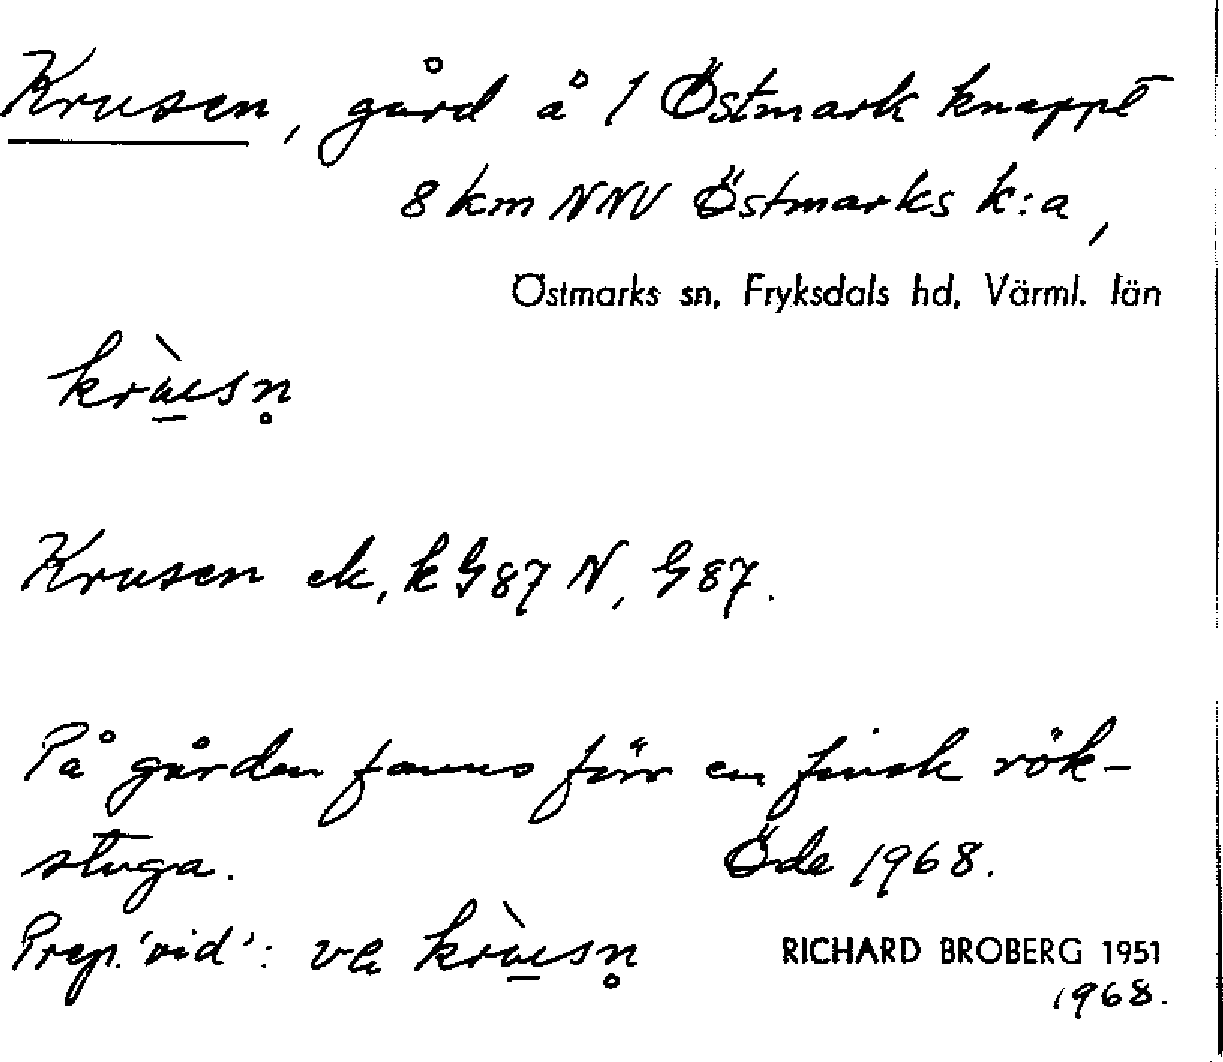 Krusen, gård å 1 Östmark knappt
8 km NNV Östmarks k:a,
Östmarks sn, Fryksdals hd, Värml. län
krùsn̥
Krusen ek, k G87 N, G87.
På gården fanns förr en finsk rök-
stuga. Öde 1968.
Prep. 'vid': va krùsn̥
RICHARD BROBERG 1951
1968.